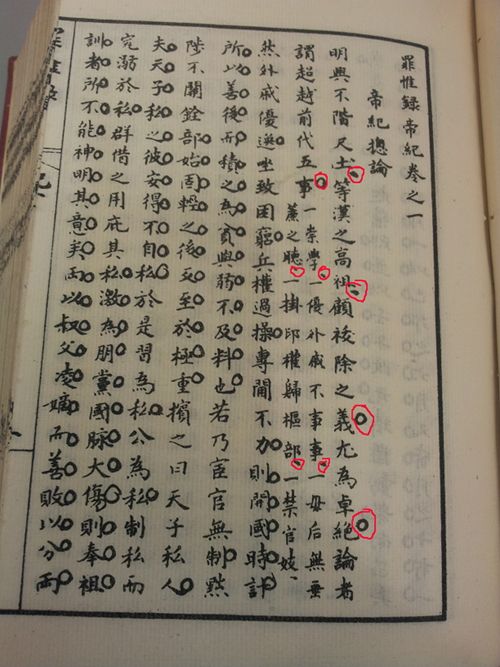 罪惟錄帝紀卷之一
帝紀總論
明興不階尺土。等漢之高祖。顧祓除之義。尤為卓絕。論者
謂超越前代五事。
一崇學、一優外戚不事事、一毋后無垂
簾之聽、一掛印權歸樞部、一禁官妓、
然外戚優選。坐致困窮。兵權過操。專閫不力。則開國時計。
所以善後。而積之為貧與弱。不及料也。若乃宦官無制。黙
陟不關銓部。始固輕之。後反至於極重。擯之曰天子私人。
夫天子私之。彼安得不自私。於是習為私。公為私。制私而
究溺於私。群借之用庇其私。激為朋黨。國脉大傷。則奉祖
訓者所不能神明其意矣。而以叔父凌嫡。而善敗以分。而